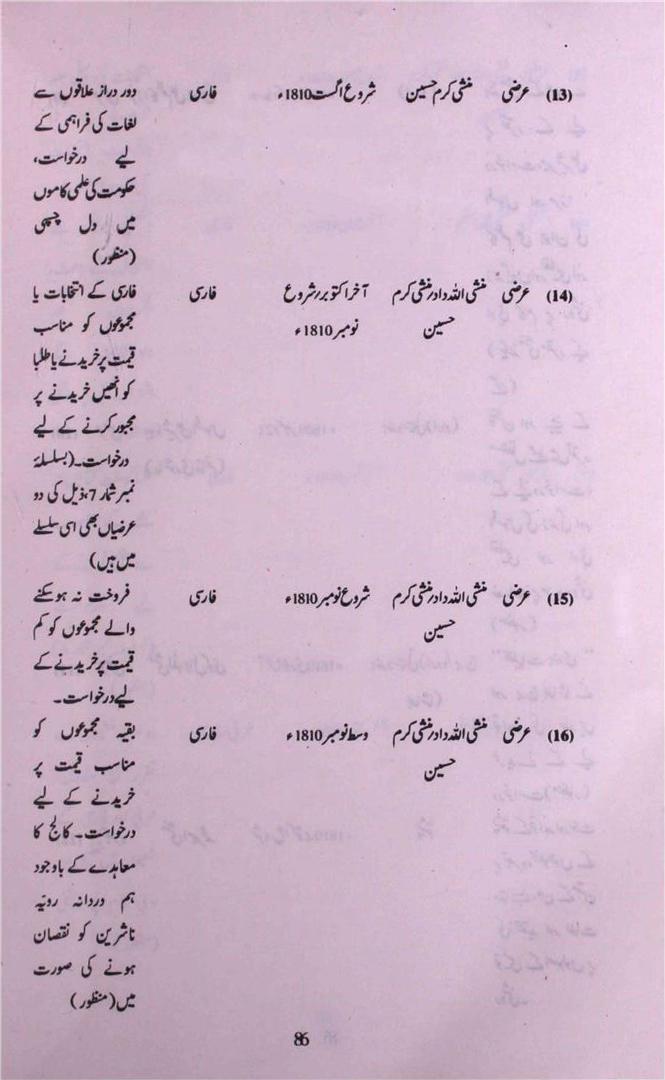 (13) عرضی منشی کرم حسین شروع اگست 1810ء فارسی دور دراز علاقوں سے
لغات کی فراہمی کے
لیے درخواست،
حکومت کی علمی کاموں
میں دل چسپی
(منظور)
(14) عرضی منشی اللہ داد منشی کرم آخر اکتوبر شروع فارسی فارسی کے انتخابات یا
حسین نومبر 1810ء مجموعوں کو مناسب
قیمت پر خریدنے یا طلبا
کو انھیں خریدنے پر
مجبور کرنے کے لیے
درخواست۔ (بسلسلۂ
نمبر شمار 7، ذیل کی دو
عرضیاں بھی اسی سلسلے
میں ہیں)
(15) عرضی منشی اللہ داد منشی کرم شروع نومبر 1810ء فارسی فروخت نہ ہو سکنے
حسین والے مجموعوں کو کم
قیمت پر خریدنے کے
لیے درخواست۔
(16) عرضی منشی اللہ داد منشی کرم وسط نومبر 1810ء فارسی بقیہ مجموعوں کو
حسین مناسب قیمت پر
خریدنے کے لیے
درخواست۔ کالج کا
معاہدے کے باوجود
ہم دردانہ رویّہ
ناشرین کو نقصان
ہونے کی صورت
میں (منظور)
86